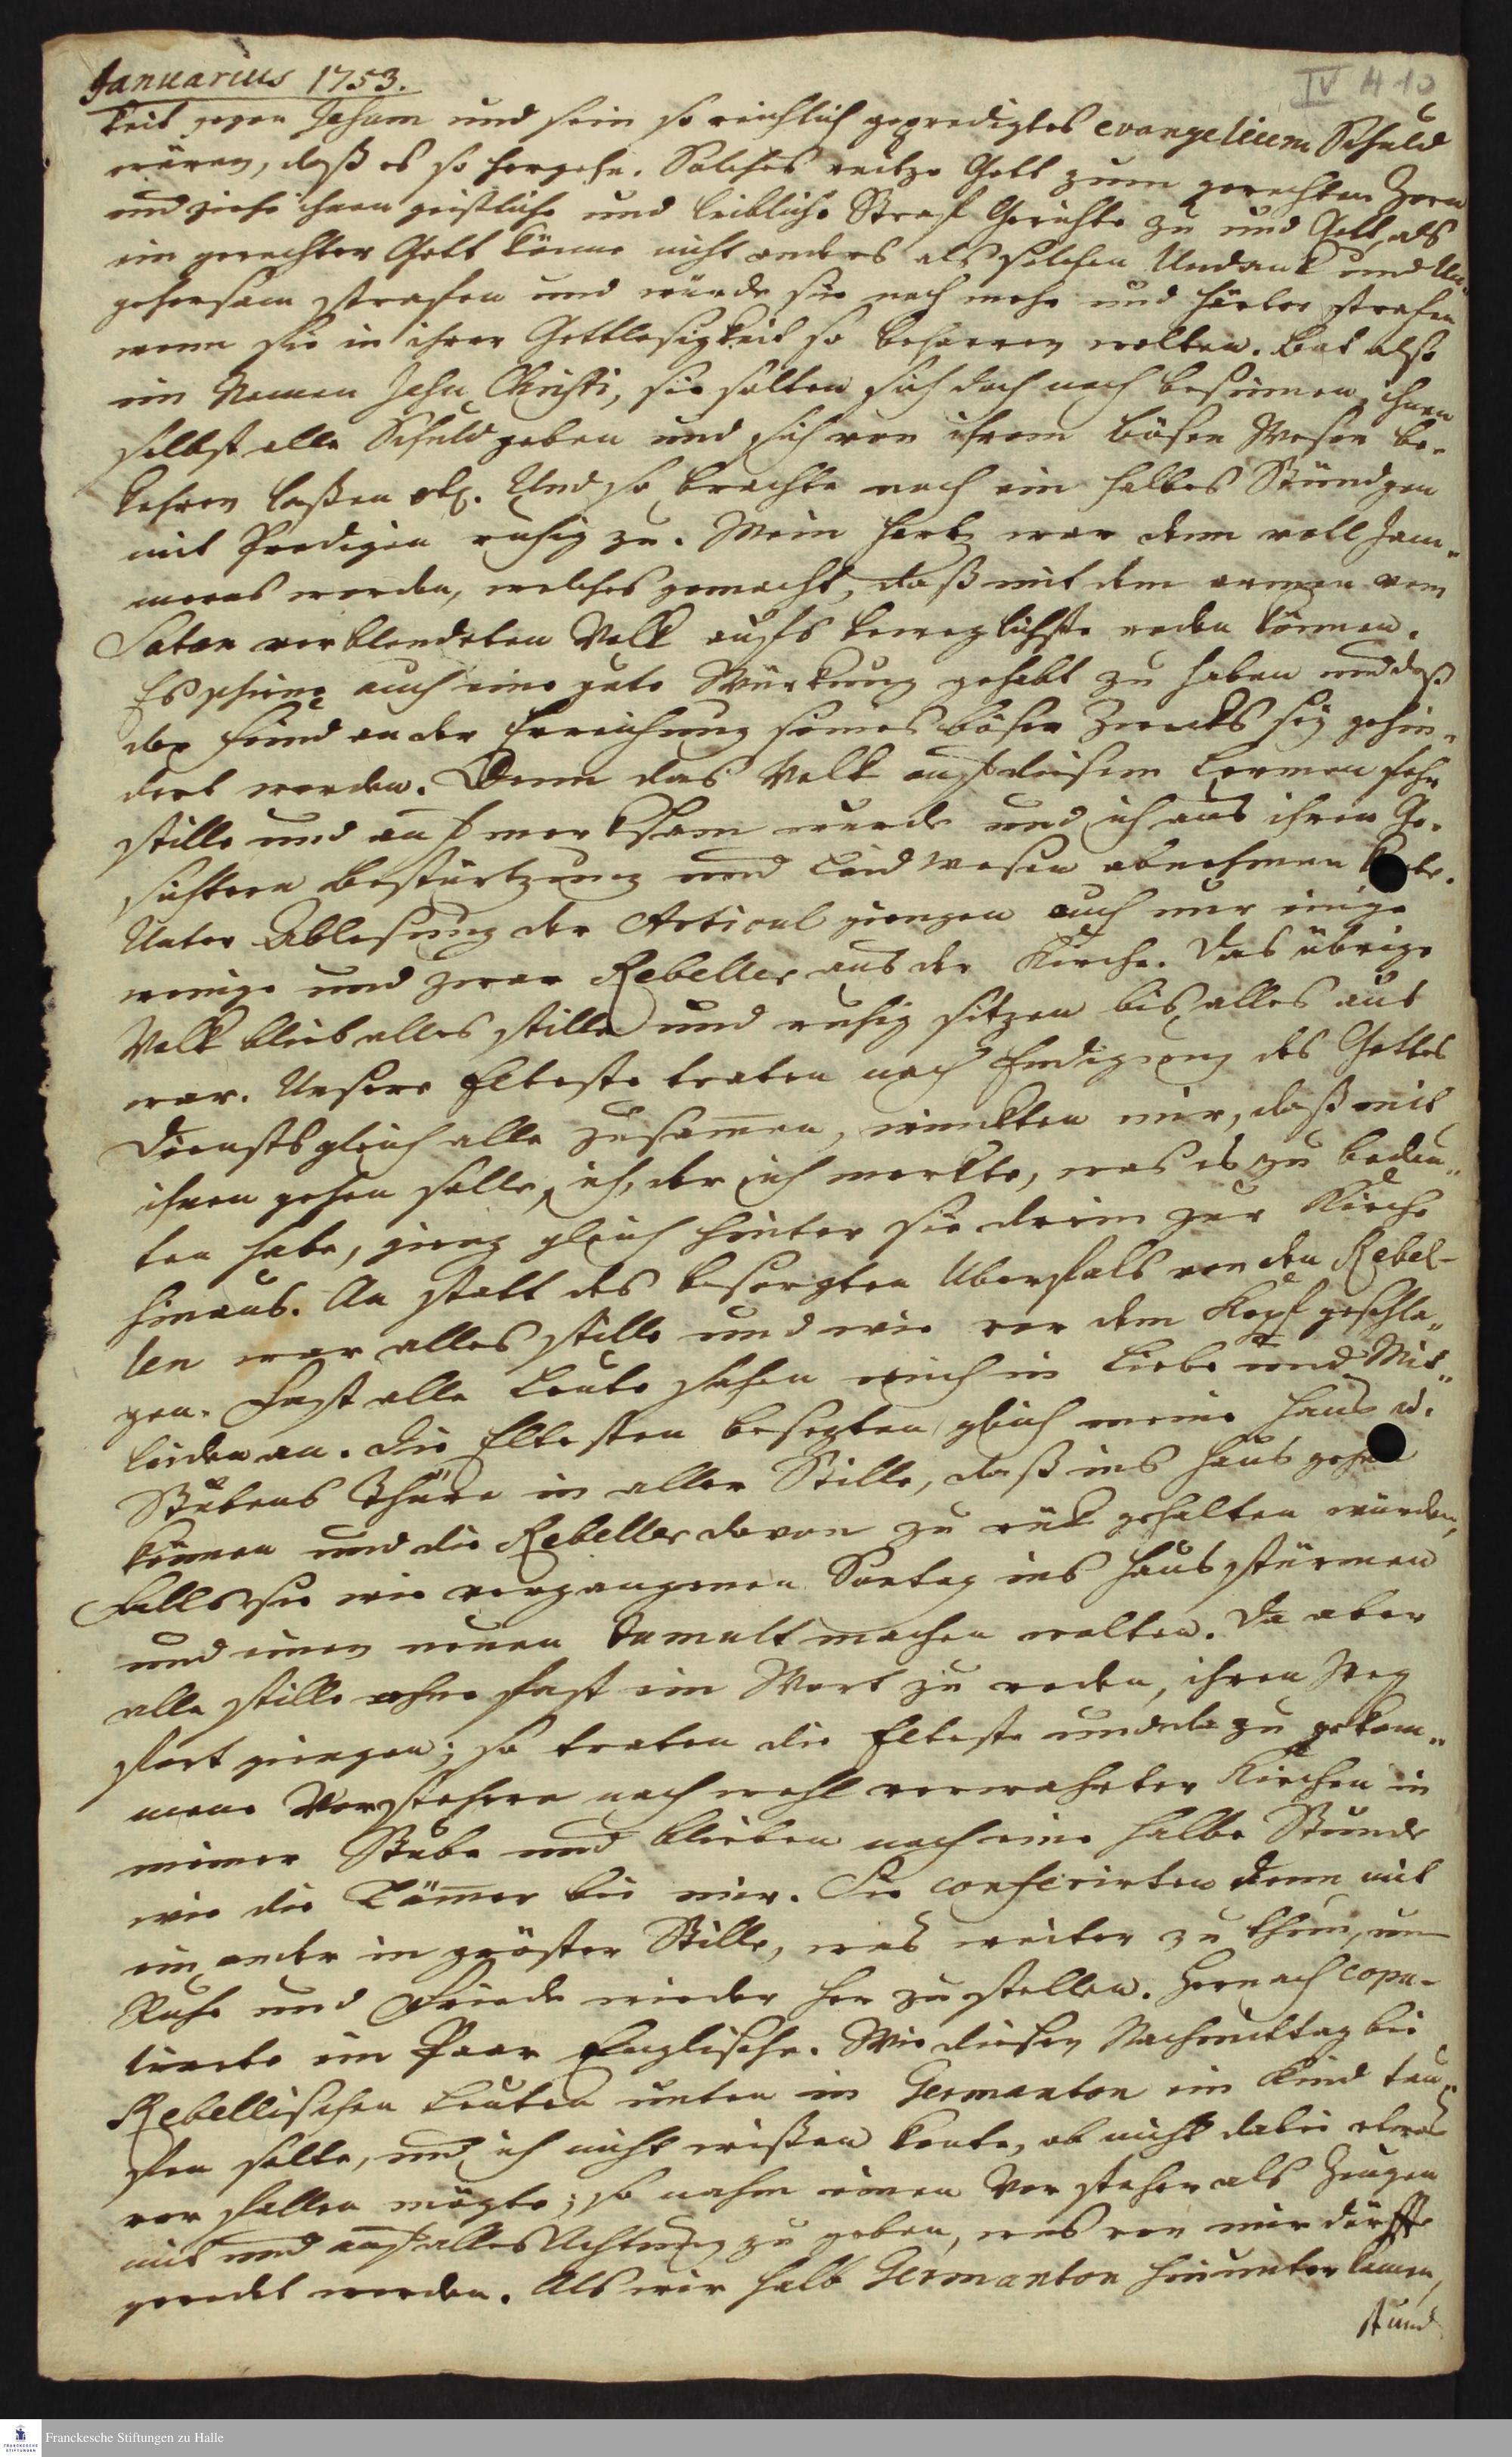 Januarius 1753.
IV H 10
keit gegen Jesum und sein so reichlich gepredigtes evangelium Schuld
wären, daß es so hergehe. Solches reitze Gott zum gerechten Zorn
und ziehe ihnen geistliche und leibliche Straf Gerichte zu und Gott, als
ein gerechter Gott könne nicht anders als solchen Undanck und Un-
gehorsam strafen und würde sie noch mehr und härter strafen
wenn sie in ihrer Gottlosigkeit so beharren wolten. Bat also
im Namen Jesu Christi, sie solten sich doch noch besinnen, ihnen
selbst alle Schuld geben und sich von ihrem bösen Wesen be-
kehren laßen etc. Und so brachte noch ein halbes Stündgen
mit Predigen ruhig zu. Mein Hertz war denn voll Jam-
mers worden, welches gemacht, daß mit dem armen vom
Satan verblendeten Volk aufs beweglichste reden können.
Es schiene auch eine gute Würckung gehabt zu haben und daß
der Feind an der Erreichung seines bösen Zwecks sey gehin-
dert worden. Denn das Volk auf diesem Lermen sehr
stille und aufmercksam wurde und ich aus ihren Ge-
sichtern Bestürtzung und Leidwesen abnehmen
Unter Ablesung der Articul giengen auch nur einige
wenige und zwar Rebeller aus der Kirche. Das übrige
Volk blieb alles stille und ruhig sitzen bis alles aus
war. Unsere Elteste traten nach Endigung des Gottes
Diensts gleich alle zusammen, winckten mir, daß mit
ihnen gehen solle, ich, der ich merkte, was es zu bedeu-
ten habe, gieng gleich hinter sie drein zur Kirche
hinaus. An statt des besorgten Uberfals von den Rebel-
len war alles stille und wie vor dem Kopf geschla-
gen. Fast alle Leute sahen mich in Liebe und Mit-
leiden an. Die Eltesten besezten gleich meine Haus u.
Stubens Thüre in aller Stille, daß ins Haus gehen
können und die Rebeller davon zu rück gehalten würden,
Falls sie wie vergangenen Sontag ins Haus stürmen
und einen neuen Tumult machen wolten. Da aber
alle stille ohne fast ein Wort zu reden, ihren Weg
fort giengen; so traten die Elteste und dazu gekom-
mene Vorstehern nach wohl verwahrter Kirchen in
meiner Stube und blieben noch eine halbe Stunde
wie die Lämmer bei mir. Sie conferirten denn mit
ein ander in gröster Stille, was weiter zu thun, um
Ruhe und Friede wieder her zu stellen. Hernach copu-
lierte ein Paar Englische. Wie diesen Nachmittag bei
Rebellischen Leuten unten in Germanton ein Kind tau-
fen solte, und ich nicht wißen konte, ob nicht dabei etwas
vor fallen mögte; so nahm einen Vorsteher als Zeugen
mit und auf alles Achtung zu geben, was von mir dürffte
geredet werden. Als wir halb Germanton hinunter kamen,
stund
Franckesche Stiftungen zu Halle